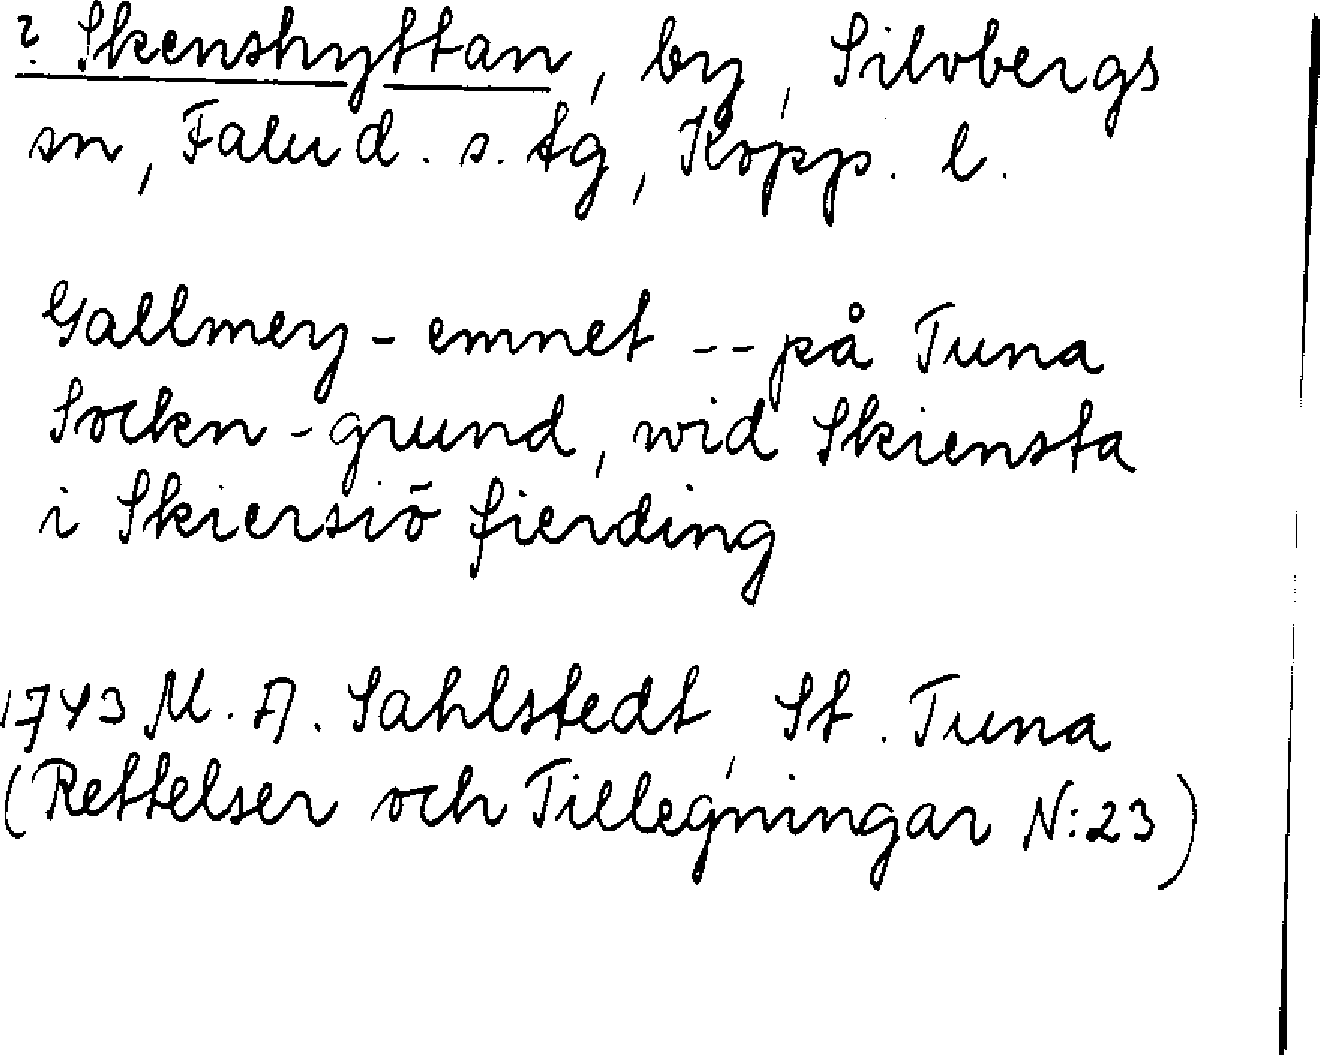 ? Skenshyttan, by, Silvbergs
sn, Falu d. s. tg, Kopp. l.
Gallmey - emnet -- på Tuna
Sockn - grund, wid Skiensta
i Skiersiö fierding
1743 M. A. Sahlstedt, St. Tuna
(Rettelser och Tillegningar N:23)